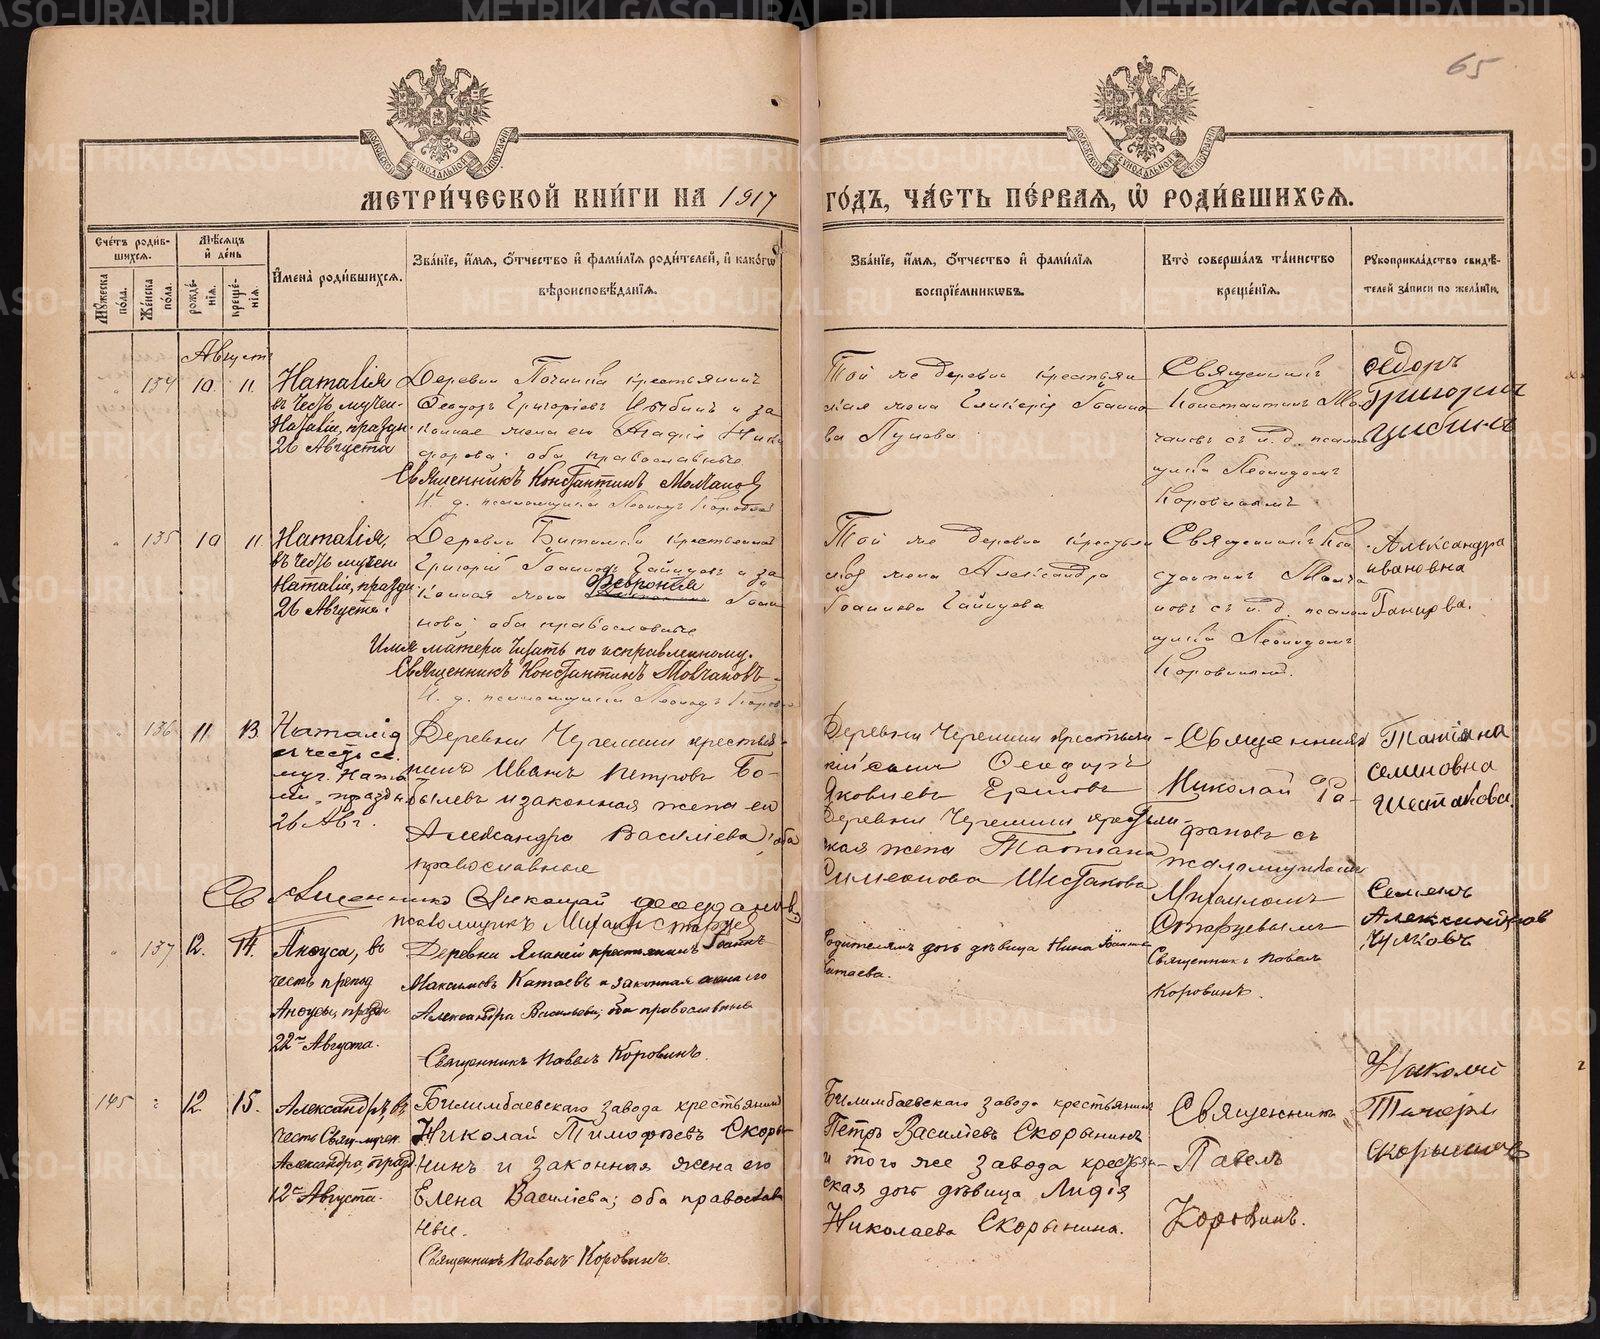 65
МЕТРИ́ЧЕСКОЙ КНИ́ГИ НА 1917 ГО́ДЪ, ЧА́СТЬ ПЕ́РВАЯ, Ѽ РОДИ́ВШИХСЯ.
Сче́тъ роди́в-
шихся.
Мѣ́сяцъ
и҆ де́нь
И҆мена̀ роди́вшихся.
Зва́нїе, и҆́мя, ѻ҆́тчество и҆ фами́лїя роди́телей, и҆ како́гѡ
вѣроисповѣ́данїя.
Зва́нїе, и҆́мя, ѻ҆́тчество и҆ фами́лїя
воспрїе́мникѡвъ.
Кто̀ соверша́лъ та́инство
креще́нїя.
Рꙋкоприкла́дство свидѣ́-
телей за́писи по жела́нїю.
Мꙋ́жеска
по́ла.
Же́нска
по́ла.
рожде́-
нїя.
креще́-
нїя.
Августъ
134 10 11
Наталія
въ честь мучен.
Наталіи, праздн.
26 Августа
Деревни Починка крестьянинъ
Ѳеодоръ Григоріевъ Цыбинъ и за
конная жена его Агафія Ники
форова; оба православные
Священникъ Константинъ Молчановъ
И. д. псаломщика Леонидъ Коровинъ
Той же деревни крестьян
ская жена Гликерія Іоанно
ва Пунева
Священникъ
Константинъ Мол
чановъ съ и. д. псалом
щика Леонидомъ
Коровинымъ
Ѳедоръ
Григорич
Цибинъ
135 10 11
Наталія,
въ честь мучен
Наталіи, праздн.
26 Августа.
Деревни Битимки крестьянинъ
Григорій Іоанновъ Ганцевъ и за
конная жена Февронія Іоан
нова; оба православные
Имя матери читать по исправленному.
Священникъ Константинъ Молчановъ
И. д. псаломщика Леонидъ Коровинъ
Той же деревни крестьян
ская жена Александра
Іоаннова
Священникъ Кон
стантинъ Молча
новъ съ и. д. псалом
щика Леонидомъ
Коровинымъ.
Александра
ивановна
136 11 13
Наталія
въ честь св.
муч. Ната
ліи, праздн.
26 Авг.
Деревни Черемши крестья-
нинъ Иванъ Петровъ Бо-
былевъ и законная жена его
Александра Василіева, оба
православные
Священникъ Николай
псаломщикъ Михаилъ Старцев
Деревни Черемши крестьян
скій сынъ Ѳеодоръ
Яковлевъ Ершовъ
Деревни Черемши крестьян-
ская жена Татіана
Симеонова Шестакова
Священникъ
Николай
съ
псаломщикомъ
Михаиломъ
Старцевымъ
Татіана
семиновна
Шестакова.
137 12. 14.
Анѳуса, въ
честь препод
Анѳусы, праздн
22го Августа.
Деревни крестьянинъ Іоаннъ
Максимовъ Катаевъ и законная жена его
Александра Васильева, оба православные
Священникъ Павелъ Коровинъ.
Родителямъ дочь дѣвица Нина Іоаннова
Катаева.
Священникъ Павелъ
Коровинъ.
Семенъ
Чумковъ
145 12. 15.
Александръ, въ
честь Свящ-мучен.
Александра, празд
12го Августа.
Билимбаевскаго завода крестьянинъ
Николай Тимоѳеевъ Скоры-
нинъ и законная жена его
Елена Василіева; оба православ
ные.
Священникъ Павелъ Коровинъ.
Билимбаевскаго завода крестьянинъ
Петръ Василіевъ Скорынинъ
и того же завода крестьян-
ская дочь дѣвица Лидія
Николаева Скорынина.
Священникъ
Павелъ
Коровинъ.
Николай
Скорынинъ
METRIKI.GASO-URAL.RU